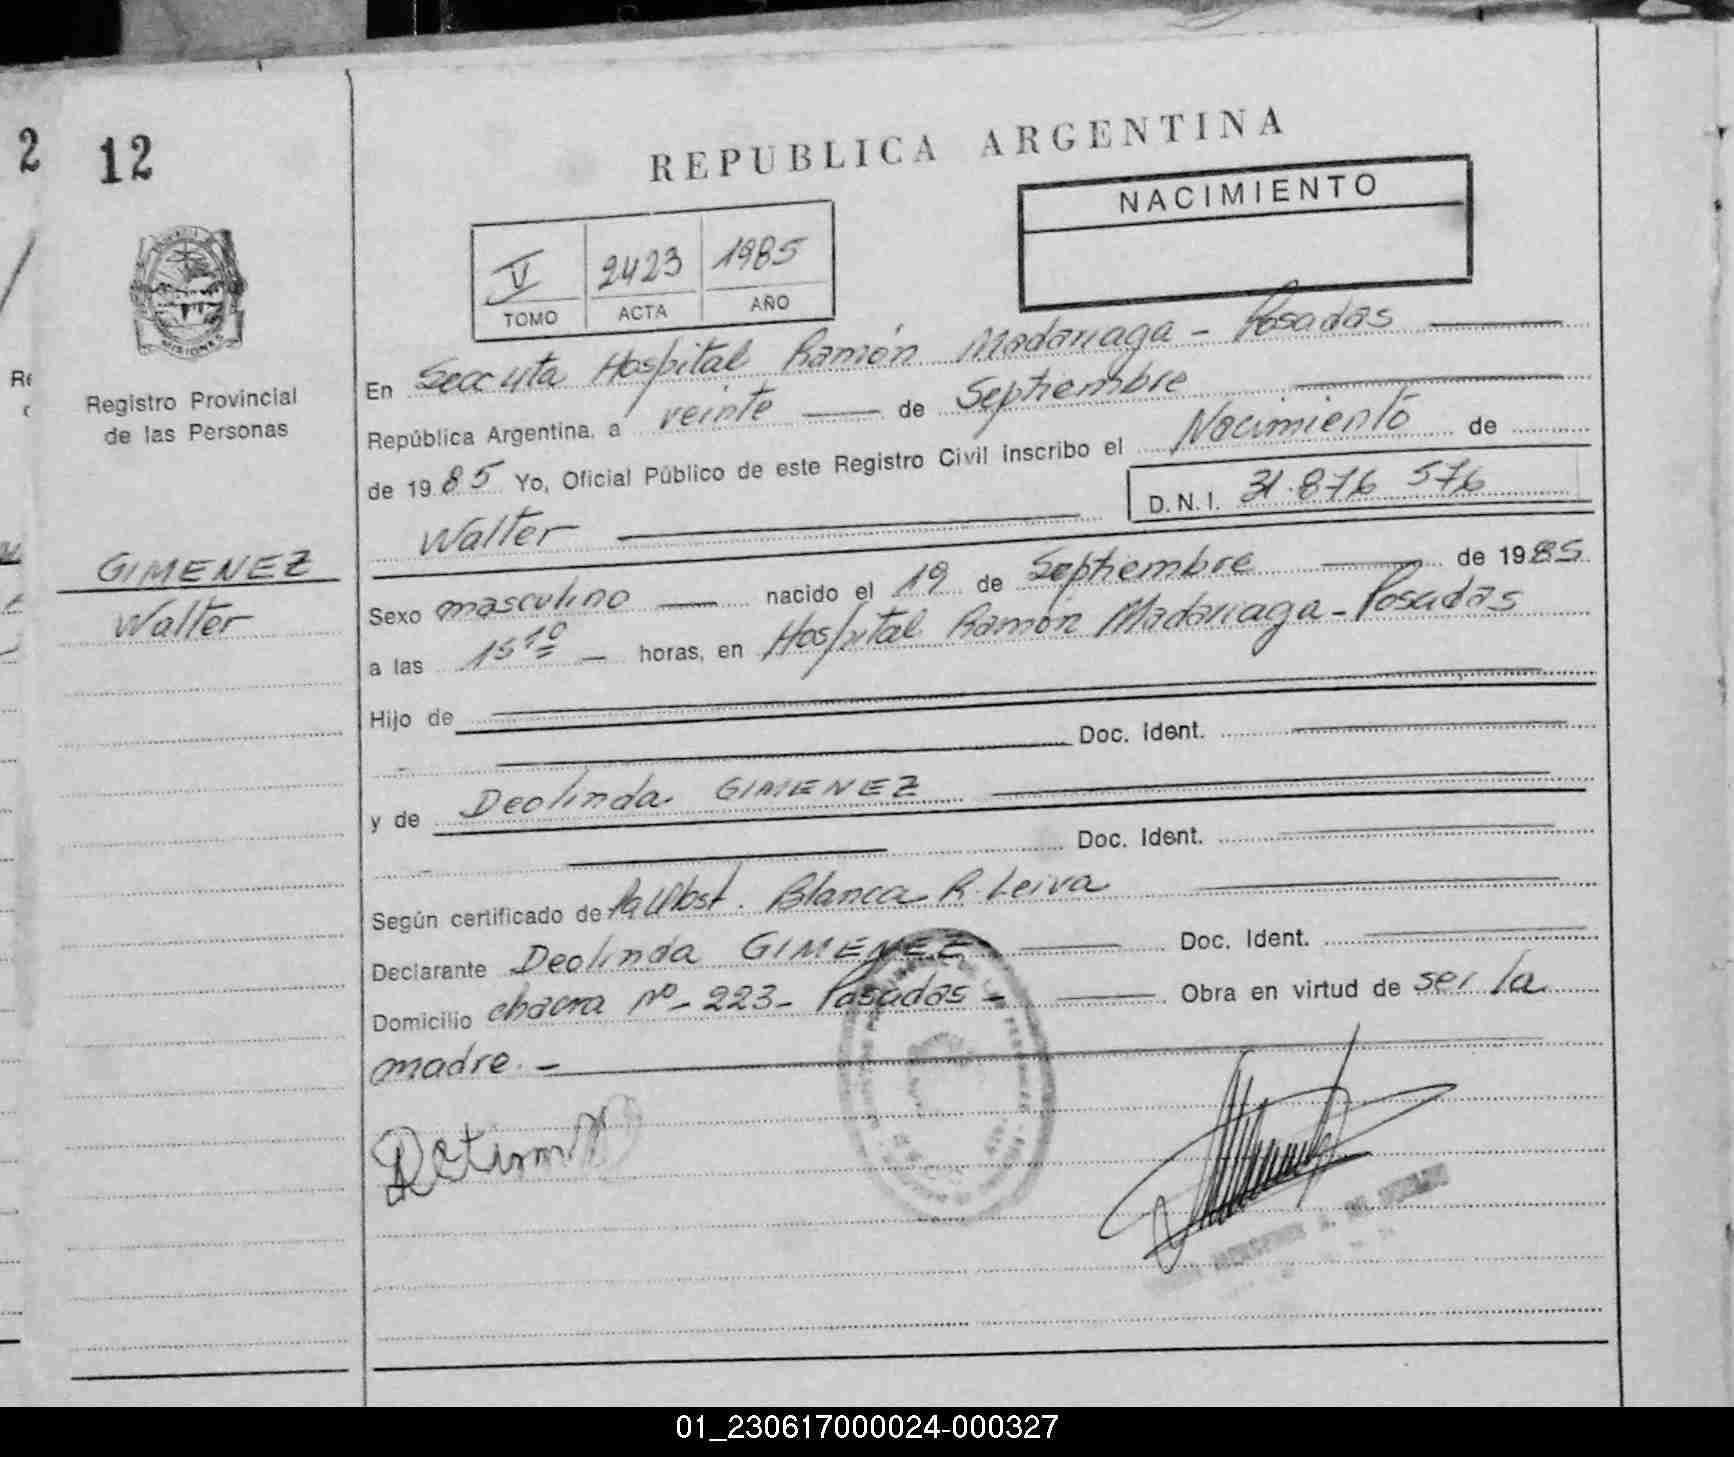 2
12
REPUBLICA ARGENTINA
NACIMIENTO
V 2423 1985
TOMO ACTA AÑO
MISIONES
Registro Provincial
de las Personas
GIMENEZ
Walter
En Hospital Ramón Madariaga - Posadas
República Argentina, a veinte de Septiembre
de 1985 Yo, Oficial Público de este Registro Civil inscribo el Nacimiento de
D.N.I. 31.876 576
Walter
Sexo masculino nacido el 19 de Septiembre de 1985
a las 15 10 horas, en Hospital Ramón Madariaga - Posadas
Hijo de
Doc. Ident.
y de Deolinda GIMENEZ
Doc. Ident.
Según certificado de Blanca R. Leiva
Declarante Deolinda GIMENEZ Doc. Ident.
Domicilio chacra nº - 223 - Posadas - Obra en virtud de ser la
madre. -
01_230617000024-000327